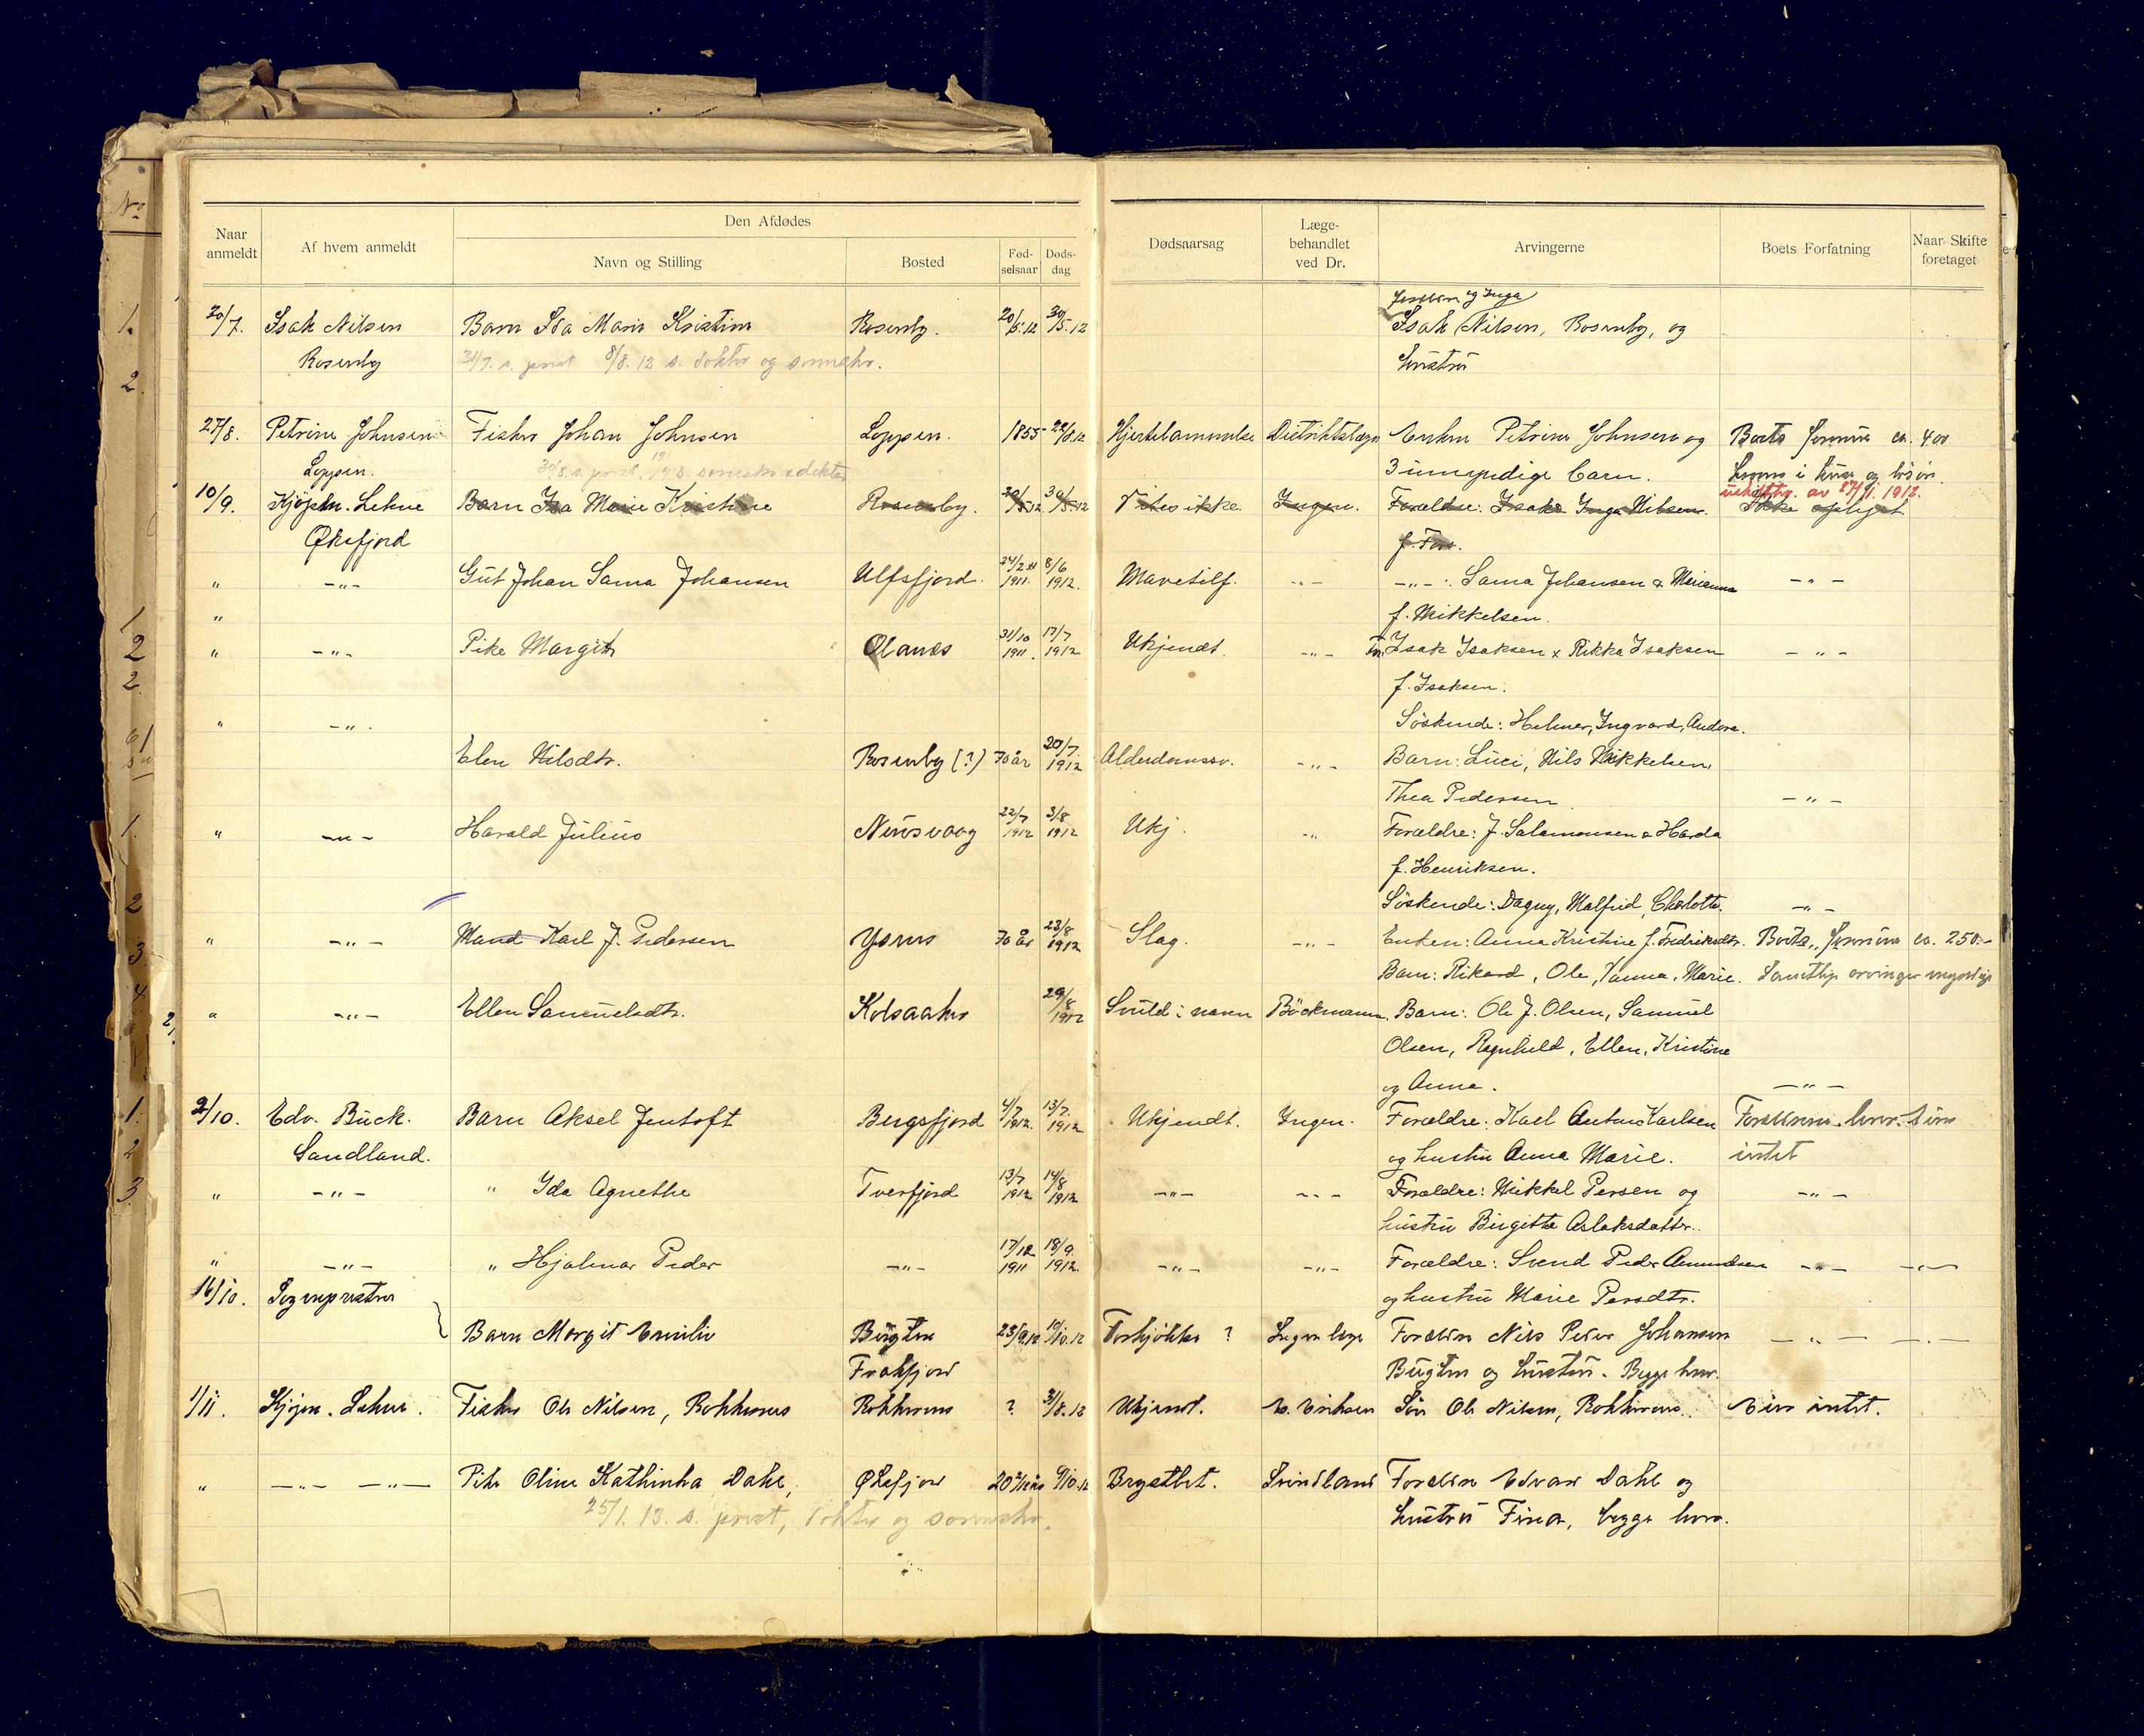 No
Naar anmeldt
Af hvem anmeldt
Den Afdødes
Navn og Stilling
Bosted
Fød-selsaar
Døds-dag
Dødsaarsag
Læge-behandlet ved Dr.
Arvingerne
Boets Forfatning
Naar Skifte foretaget
Forældre og Inga
30/7. Isak Nilsen Barn Ida Marie Kristine Rosenby. 20/5.12 30/5.12 Isak Nilsen, Rosenby, og
Rosenby 31/7. s. prest 8/8. 12 s. doktor og sorenskr. hustru
27/8. Petrine Johnsen Fisker Johan Johnsen Loppen. 1855 22/8.12 Hjertelammelse Distriktslægen Enken Petrine Johnsen og Boets formue ca. 400
Loppen. 30/8. s. prest. sorenskr. & doktor 3 umyndige barn. kroner i hus og løsøre.
uskiftbev. av 27/11. 1912.
10/9. Kjøpm. Lehne Barn Isa Marie Kristine Rosenby. 20/5 12 30/5 12 Vites ikke Ingen. Forældre: Isak & Inga Nilsen. Ikke oplyst
Øksfjord f. For.
" -"- Gut Johan Sama Johansen Ulfsfjord. 24/2 1911. 8/6 1912. Mavetilf. -"- -"-: Sama Johansen & Marianna -"-
" f. Mikkelsen.
" -"- Pike Margit Olanes 31/10 1911. 17/7 1912 Ukjendt. -"- Isak Isaksen & Rikka Isaksen -"-
f. Isaksen.
" -"- Søskende: Helmer, Ingvard, Andora.
Elen Nilsdtr. Rosenby (?) 70 år 20/7. 1912 Alderdomssv. -"- Barn: Luci, Nils Mikkelsen,
Thea Pedersen. -"-
" -"- Harald Julius Nuvsvaag 22/7 1912 3/8 1912 Ukj. -"- Forældre: J. Salamonsen & Harda
f. Henriksen.
Søskende: Dagny, Malfrid, Charlotte. -"-
" -"- Mand Karl J. Pedersen Ysnes 70 år 23/8 1912 Slag. -"- Enken: Anna Kristine f. Fredriksdtr. Boets formue ca. 250.-
Barn: Rikard, Ole, Hanna, Marie. Samtlige arvinger myndige
" -"- Ellen Samuelsdtr. Kolsaaker 29/8 1912 Svuld i maven Böckmann. Barn: Ole J. Olsen, Samuel
Olsen, Ragnhild, Ellen, Kristine
og Anna. -"-
2/10. Edv. Buck. Barn Aksel Jentoft Bergsfjord 4/7 1912. 13/7. 1912 Ukjendt. Ingen. Forældre: Karl Anton Karlsen Forældrene lever. Eier
Sandland. og hustru Anna Marie. intet
" -"- " Ida Agnethe Tverfjord 13/7 1912 14/8 1912 -"- -"- Forældre: Mikkel Persen og -"-
hustru Birgitte Aslaksdatter.
" -"- " Hjalmar Peder -"- 17/12 1911 18/9. 1912. -"- -"- Forældre: Svend Peder Amundsen -"- -"-
16/10. Sognepresten og hustru Marie Persdtr.
Barn Margit Emilie Bugten 25/9.12 10/10.12 Forkjølelse ? Ingen læge Forældre Nils Peder Johansen -"- -"-
Frakfjord Bugten og hustru. Begge lever.
1/11. Kjøpm. Lehne. Fisker Ole Nilsen, Rokkenes Rokkenes ? 31/8.12 Ukjendt. E. Eriksen Søn Ole Nilsen, Rokkenes. Eier intet.
" -"- -"- Pike Oline Kathinka Dahl, Øksfjord Brysttbt. Svindland Forældre Edvard Dahl og
25/1. 13. s. prest, doktor og sorenskr. hustru Fina, begge lever.